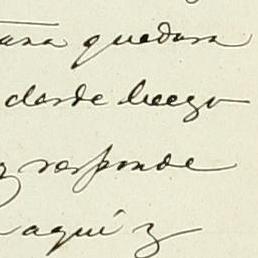 para quedara
desde luego
y responde
aquí y